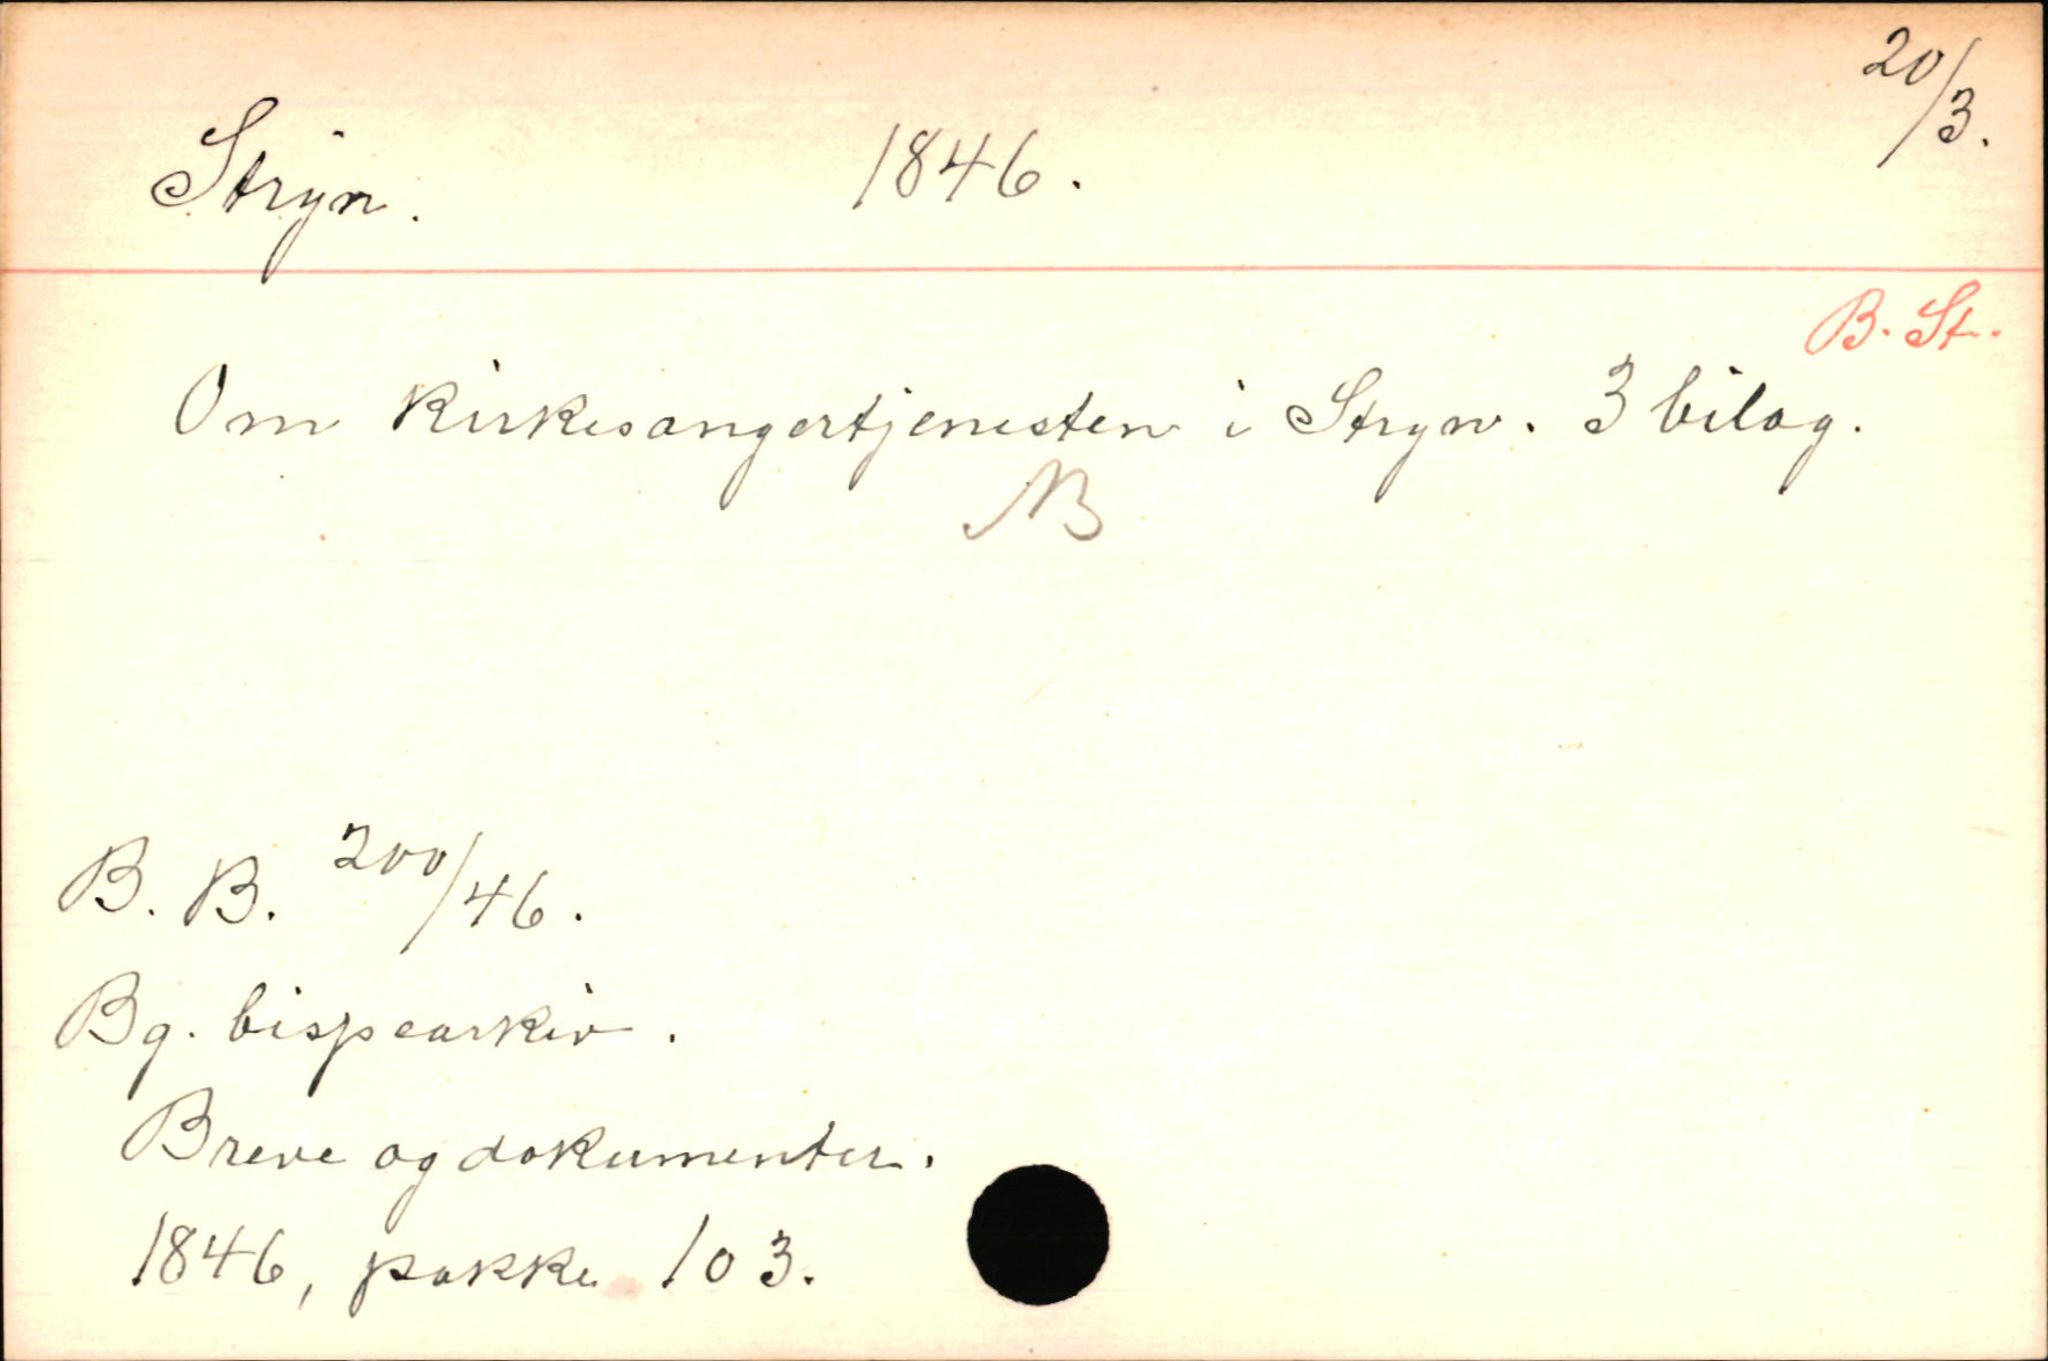 Stryn. 1846. 20/3.
B. St.
Om kirkesangertjenesten i Stryn. 3 bilag.
NB
B. B. 200/46.
Bg. bispearkiv.
Breve og dokumenter.
1846, pakke 103.